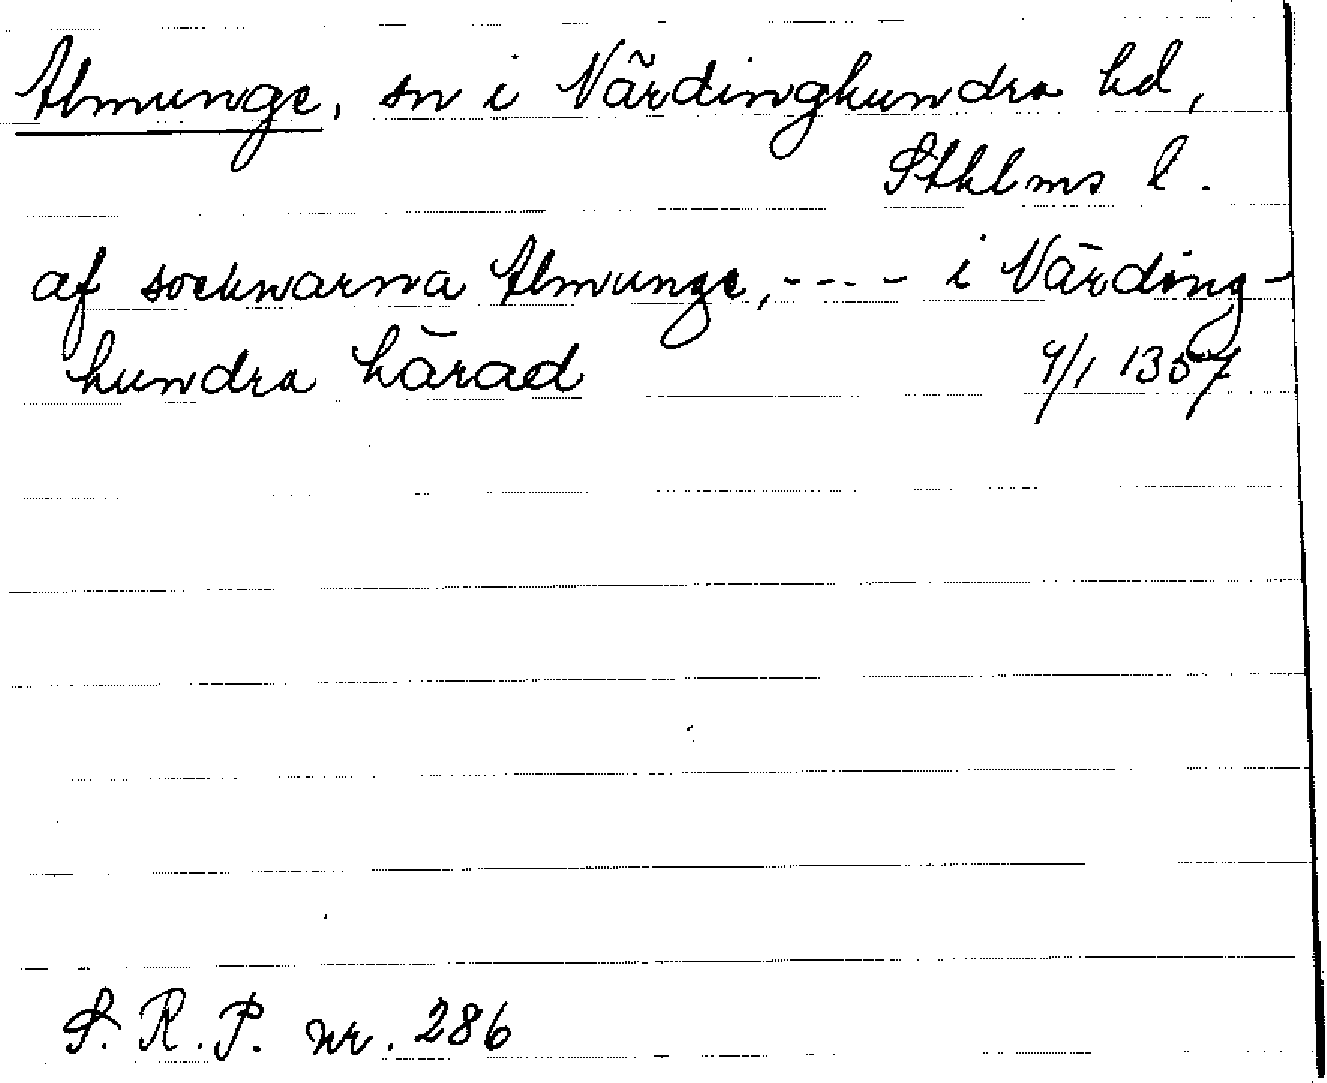 Almunge, sn i Närdinghundra hd,
Sthlms l.
af socknarna Almunge, - - - - i Närding-
hundra härad 9/1 1357
S. R. P. nr. 286